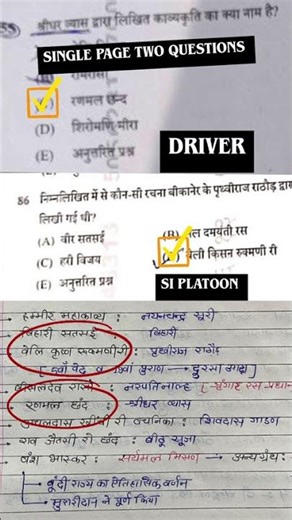 श्रीधर व्यास द्वारा लिखित काव्यकृति का क्या नाम है?
SINGLE PAGE TWO QUESTIONS
रणमल छन्द
(D) शिरोमणि मीरा
(E) अनुत्तरित प्रश्न
DRIVER
86 निम्नलिखित में से कौन-सी रचना बीकानेर के पृथ्वीराज राठौड़ द्वारा
लिखी गई थी?
(A) वीर सतसई (B) नल दमयंती रस
(C) हरी विजय वेली किसन रुक्मणी री
(E) अनुत्तरित प्रश्न
SI PLATOON
हम्मीर महाकाव्य : नयनचन्द्र सूरी
बिहारी सतसई : बिहारी
वेलि कृष्ण रुक्मणीरी : पृथ्वीराज राठौड़
[ 5वाँ वेद व 19वाँ पुराण → दुरसा आढ़ा ]
बीसलदेव रासो : नरपति नाल्ह [ श्रृंगार रस प्रधान
रणमल छंद : श्रीधर व्यास
अचलदास खींची री वचनिका : शिवदास गाडण
राव जैतसी रो छंद : बीठू सूजा
वंश भास्कर : सूर्यमल्ल मिसण → अन्य ग्रंथ :
बूंदी राज्य का ऐतिहासिक वर्णन
मुरारीदान ने पूर्ण किया